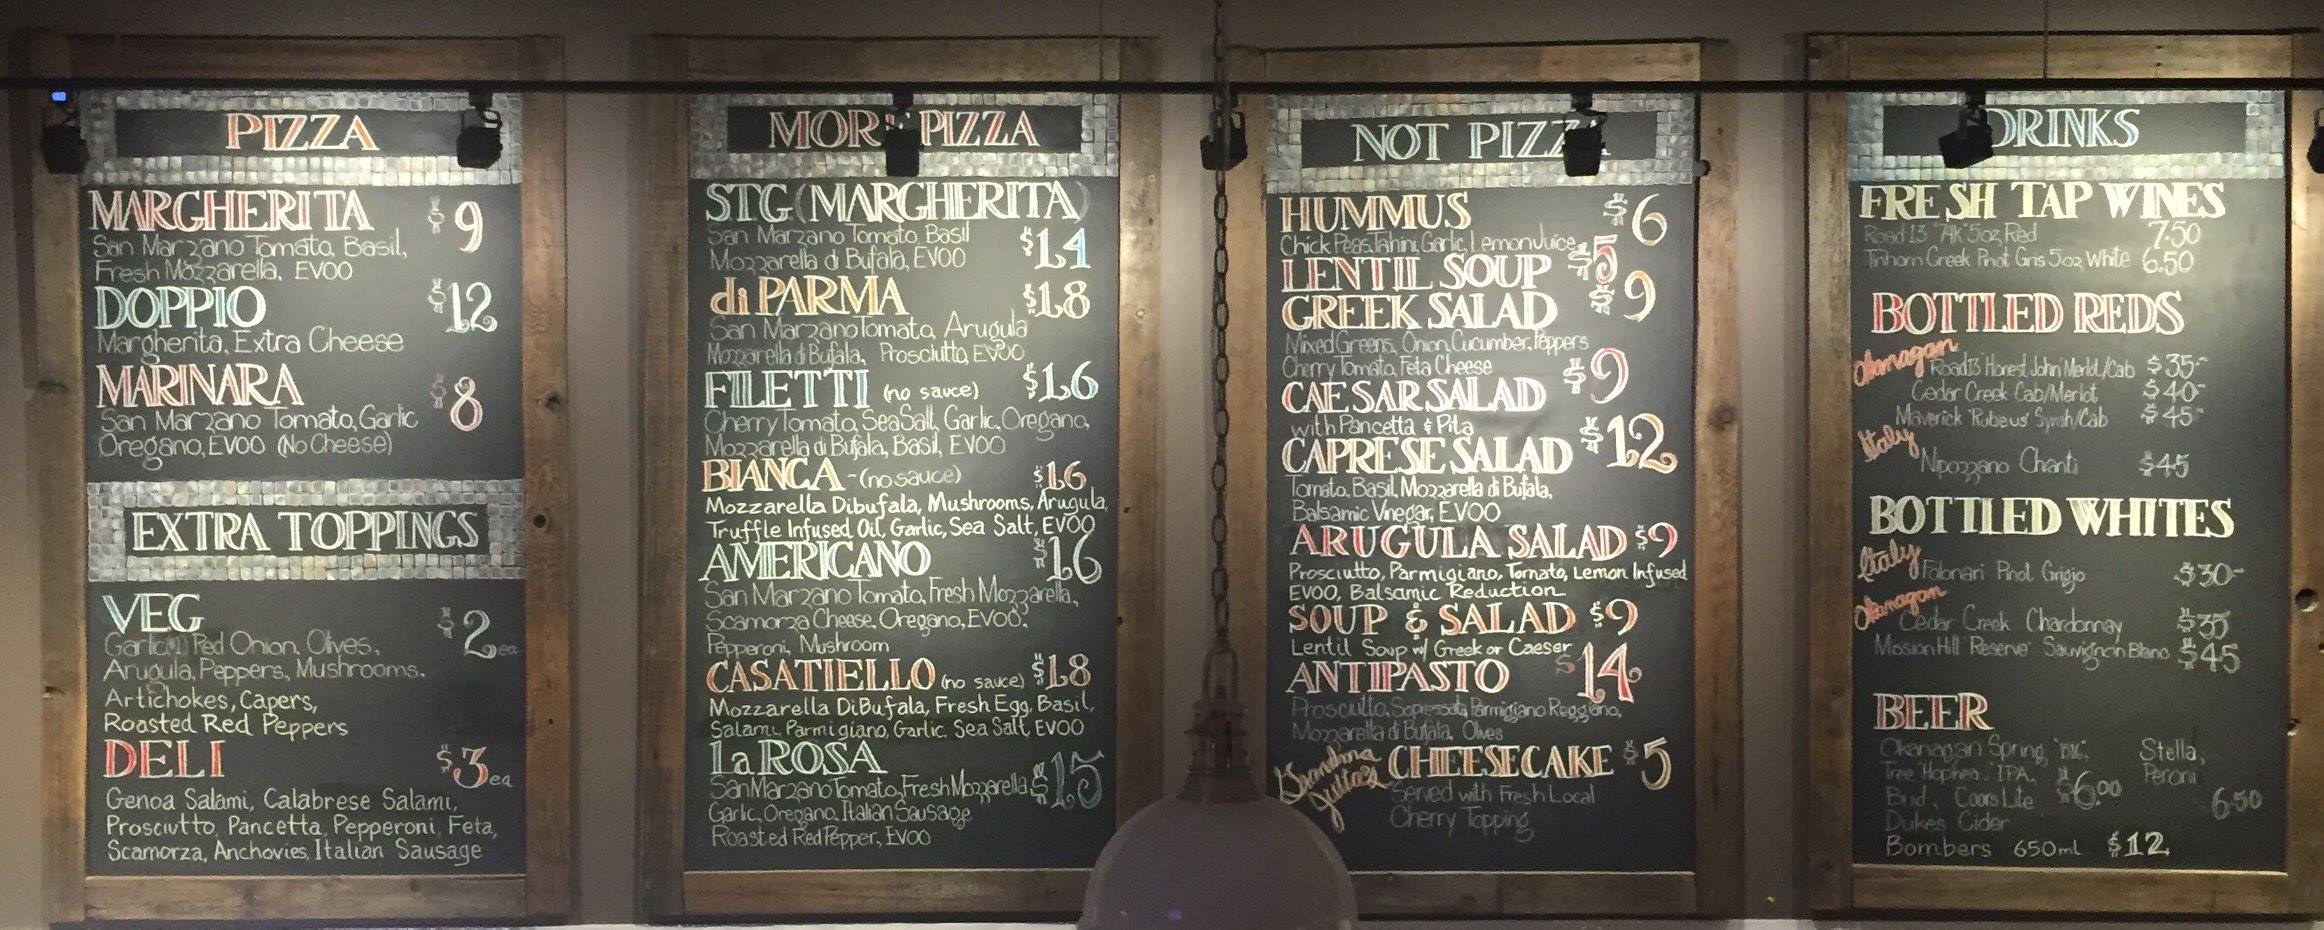 PIZZA
MARGHERITA $9
San Marzano Tomato, Basil,
Fresh Mozzarella, EVOO
DOPPIO $12
Margherita, Extra Cheese
MARINARA $8
San Marzano Tomato, Garlic
Oregano, EVOO (No Cheese)
EXTRA TOPPINGS
VEG $2 ea
Garlic, Red Onion, Olives,
Arugula, Peppers, Mushrooms,
Artichokes, Capers,
Roasted Red Peppers
DELI $3 ea
Genoa Salami, Calabrese Salami,
Prosciutto, Pancetta, Pepperoni, Feta,
Scamorza, Anchovies, Italian Sausage
MORE PIZZA
STG (MARGHERITA)
San Marzano Tomato, Basil $14
Mozzarella di Bufala, EVOO
di PARMA $18
San Marzano Tomato, Arugula
Mozzarella di Bufala, Prosciutto, EVOO
FILETTI (no sauce) $16
Cherry Tomato, Sea Salt, Garlic, Oregano,
Mozzarella di Bufala, Basil, EVOO
BIANCA - (no sauce) $16
Mozzarella Dibufala, Mushrooms, Arugula,
Truffle Infused Oil, Garlic, Sea Salt, EVOO
AMERICANO $16
San Marzano Tomato, Fresh Mozzarella,
Scamorza Cheese, Oregano, EVOO,
Pepperoni, Mushroom
CASATIELLO (no sauce) $18
Mozzarella DiBufala, Fresh Egg, Basil,
Salami, Parmigiano, Garlic, Sea Salt, EVOO
la ROSA $15
San Marzano Tomato, Fresh Mozzarella
Garlic, Oregano, Italian Sausage
Roasted Red Pepper, EVOO
NOT PIZZA
HUMMUS $6
Chick Peas, Tahini, Garlic, Lemon Juice
LENTIL SOUP $5
GREEK SALAD $9
Mixed Greens, Onion, Cucumber, Peppers
Cherry Tomato, Feta Cheese
CAESAR SALAD $9
with Pancetta & Pita
CAPRESE SALAD $12
Tomato, Basil, Mozzarella di Bufala,
Balsamic Vinegar, EVOO
ARUGULA SALAD $9
Prosciutto, Parmigiano, Tomato, Lemon Infused
EVOO, Balsamic Reduction
SOUP & SALAD $9
Lentil Soup w/ Greek or Caeser
ANTIPASTO $14
Prosciutto, Sopressata, Parmigiano Reggiano,
Mozzarella di Bufala, Olives
Grandma Jutta's CHEESECAKE $5
Served with Fresh Local
Cherry Topping
DRINKS
FRESH TAP WINES
Road 13 "74K" 5oz Red 7.50
Tinhorn Creek Pinot Gris 5oz White 6.50
BOTTLED REDS
Okanagan Road 13 'Honest John' Merlot/Cab $35-
Cedar Creek Cab/Merlot $40-
Maverick 'Rubeus' Syrah/Cab $45-
Italy
Nipozzano Chanti $45
BOTTLED WHITES
Italy Folonari Pinot Grigio $30-
Okanagan
Cedar Creek Chardonnay $35
Mission Hill 'Reserve' Sauvignon Blanc $45
BEER
Okanagan Spring, Stella,
Tree 'Hophead' IPA, $6.00 Peroni
Bud, Coors Lite 6.50
Dukes Cider
Bombers 650ml $12